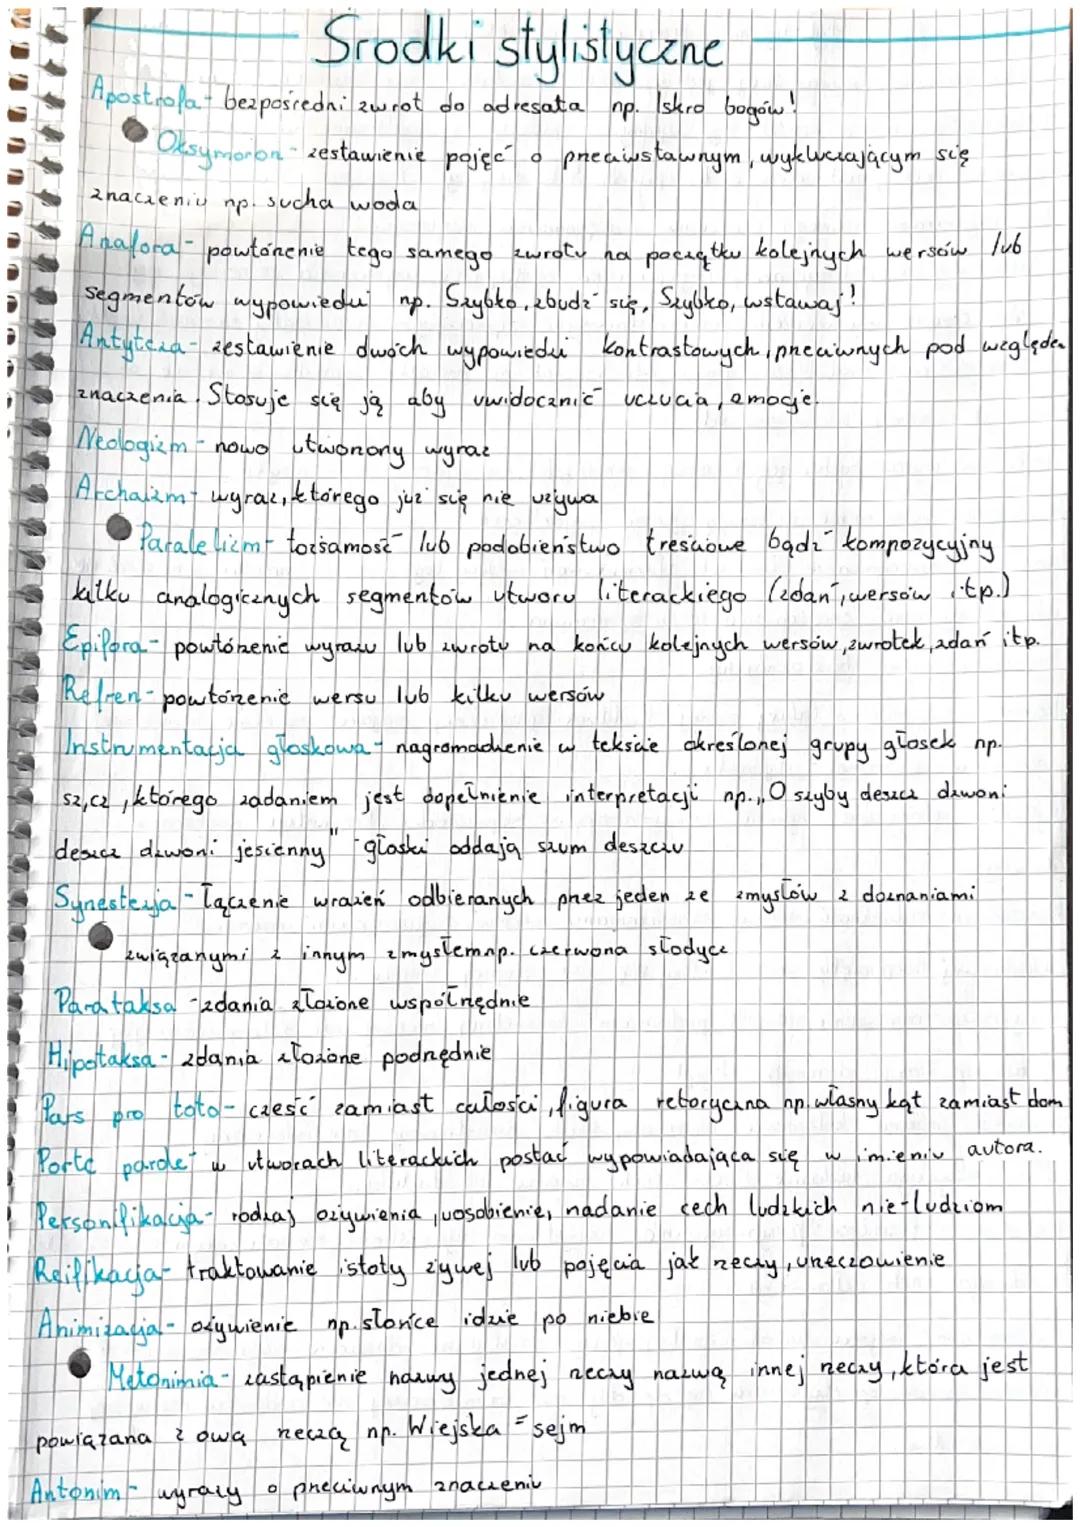 Środki stylistyczne
Apostrofa - bezpośredni zwrot do adresata np. Iskro bogów!
Oksymoron - zestawienie pojęć o przeciwstawnym, wykluczającym się
znaczeniu np. sucha woda
Anafora - powtórzenie tego samego zwrotu na początku kolejnych wersów lub
segmentów wypowiedzi np. Szybko, zbudź się, Szybko, wstawaj!
Antyteza - zestawienie dwóch wypowiedzi kontrastowych, przeciwnych pod względem
znaczenia. Stosuje się ją aby uwidocznić uczucia, emocje.
Neologizm - nowo utworzony wyraz
Archaizm - wyraz, którego już się nie używa
Paralelizm - tożsamość lub podobieństwo treściowe bądź kompozycyjny
kilku analogicznych segmentów utworu literackiego (zdań, wersów itp.)
Epifora - powtórzenie wyrazu lub zwrotu na końcu kolejnych wersów, zwrotek, zdań itp.
Refren - powtórzenie wersu lub kilku wersów
Instrumentacja głoskowa - nagromadzenie w tekście określonej grupy głosek np.
sz, cz, którego zadaniem jest dopełnienie interpretacji np. „O szyby deszcz dzwoni
deszcz dzwoni jesienny" - głoski oddają szum deszczu
Synestezja - łączenie wrażeń odbieranych przez jeden ze zmysłów z doznaniami
związanymi z innym zmysłem np. czerwona słodycz
Parataksa - zdania złożone współrzędnie
Hipotaksa - zdania złożone podrzędnie
Pars pro toto - cześć zamiast całości, figura retoryczna np. własny kąt zamiast dom
Porte parole - w utworach literackich postać wypowiadająca się w imieniu autora.
Personifikacja - rodzaj ożywienia, uosobienie, nadanie cech ludzkich nie-ludziom
Reifikacja - traktowanie istoty żywej lub pojęcia jak rzeczy, urzeczowienie
Animizacja - ożywienie np. słońce idzie po niebie
Metonimia - zastąpienie nazwy jednej rzeczy nazwą innej rzeczy, która jest
powiązana z ową rzeczą np. Wiejska = sejm
Antonim - wyrazy o przeciwnym znaczeniu